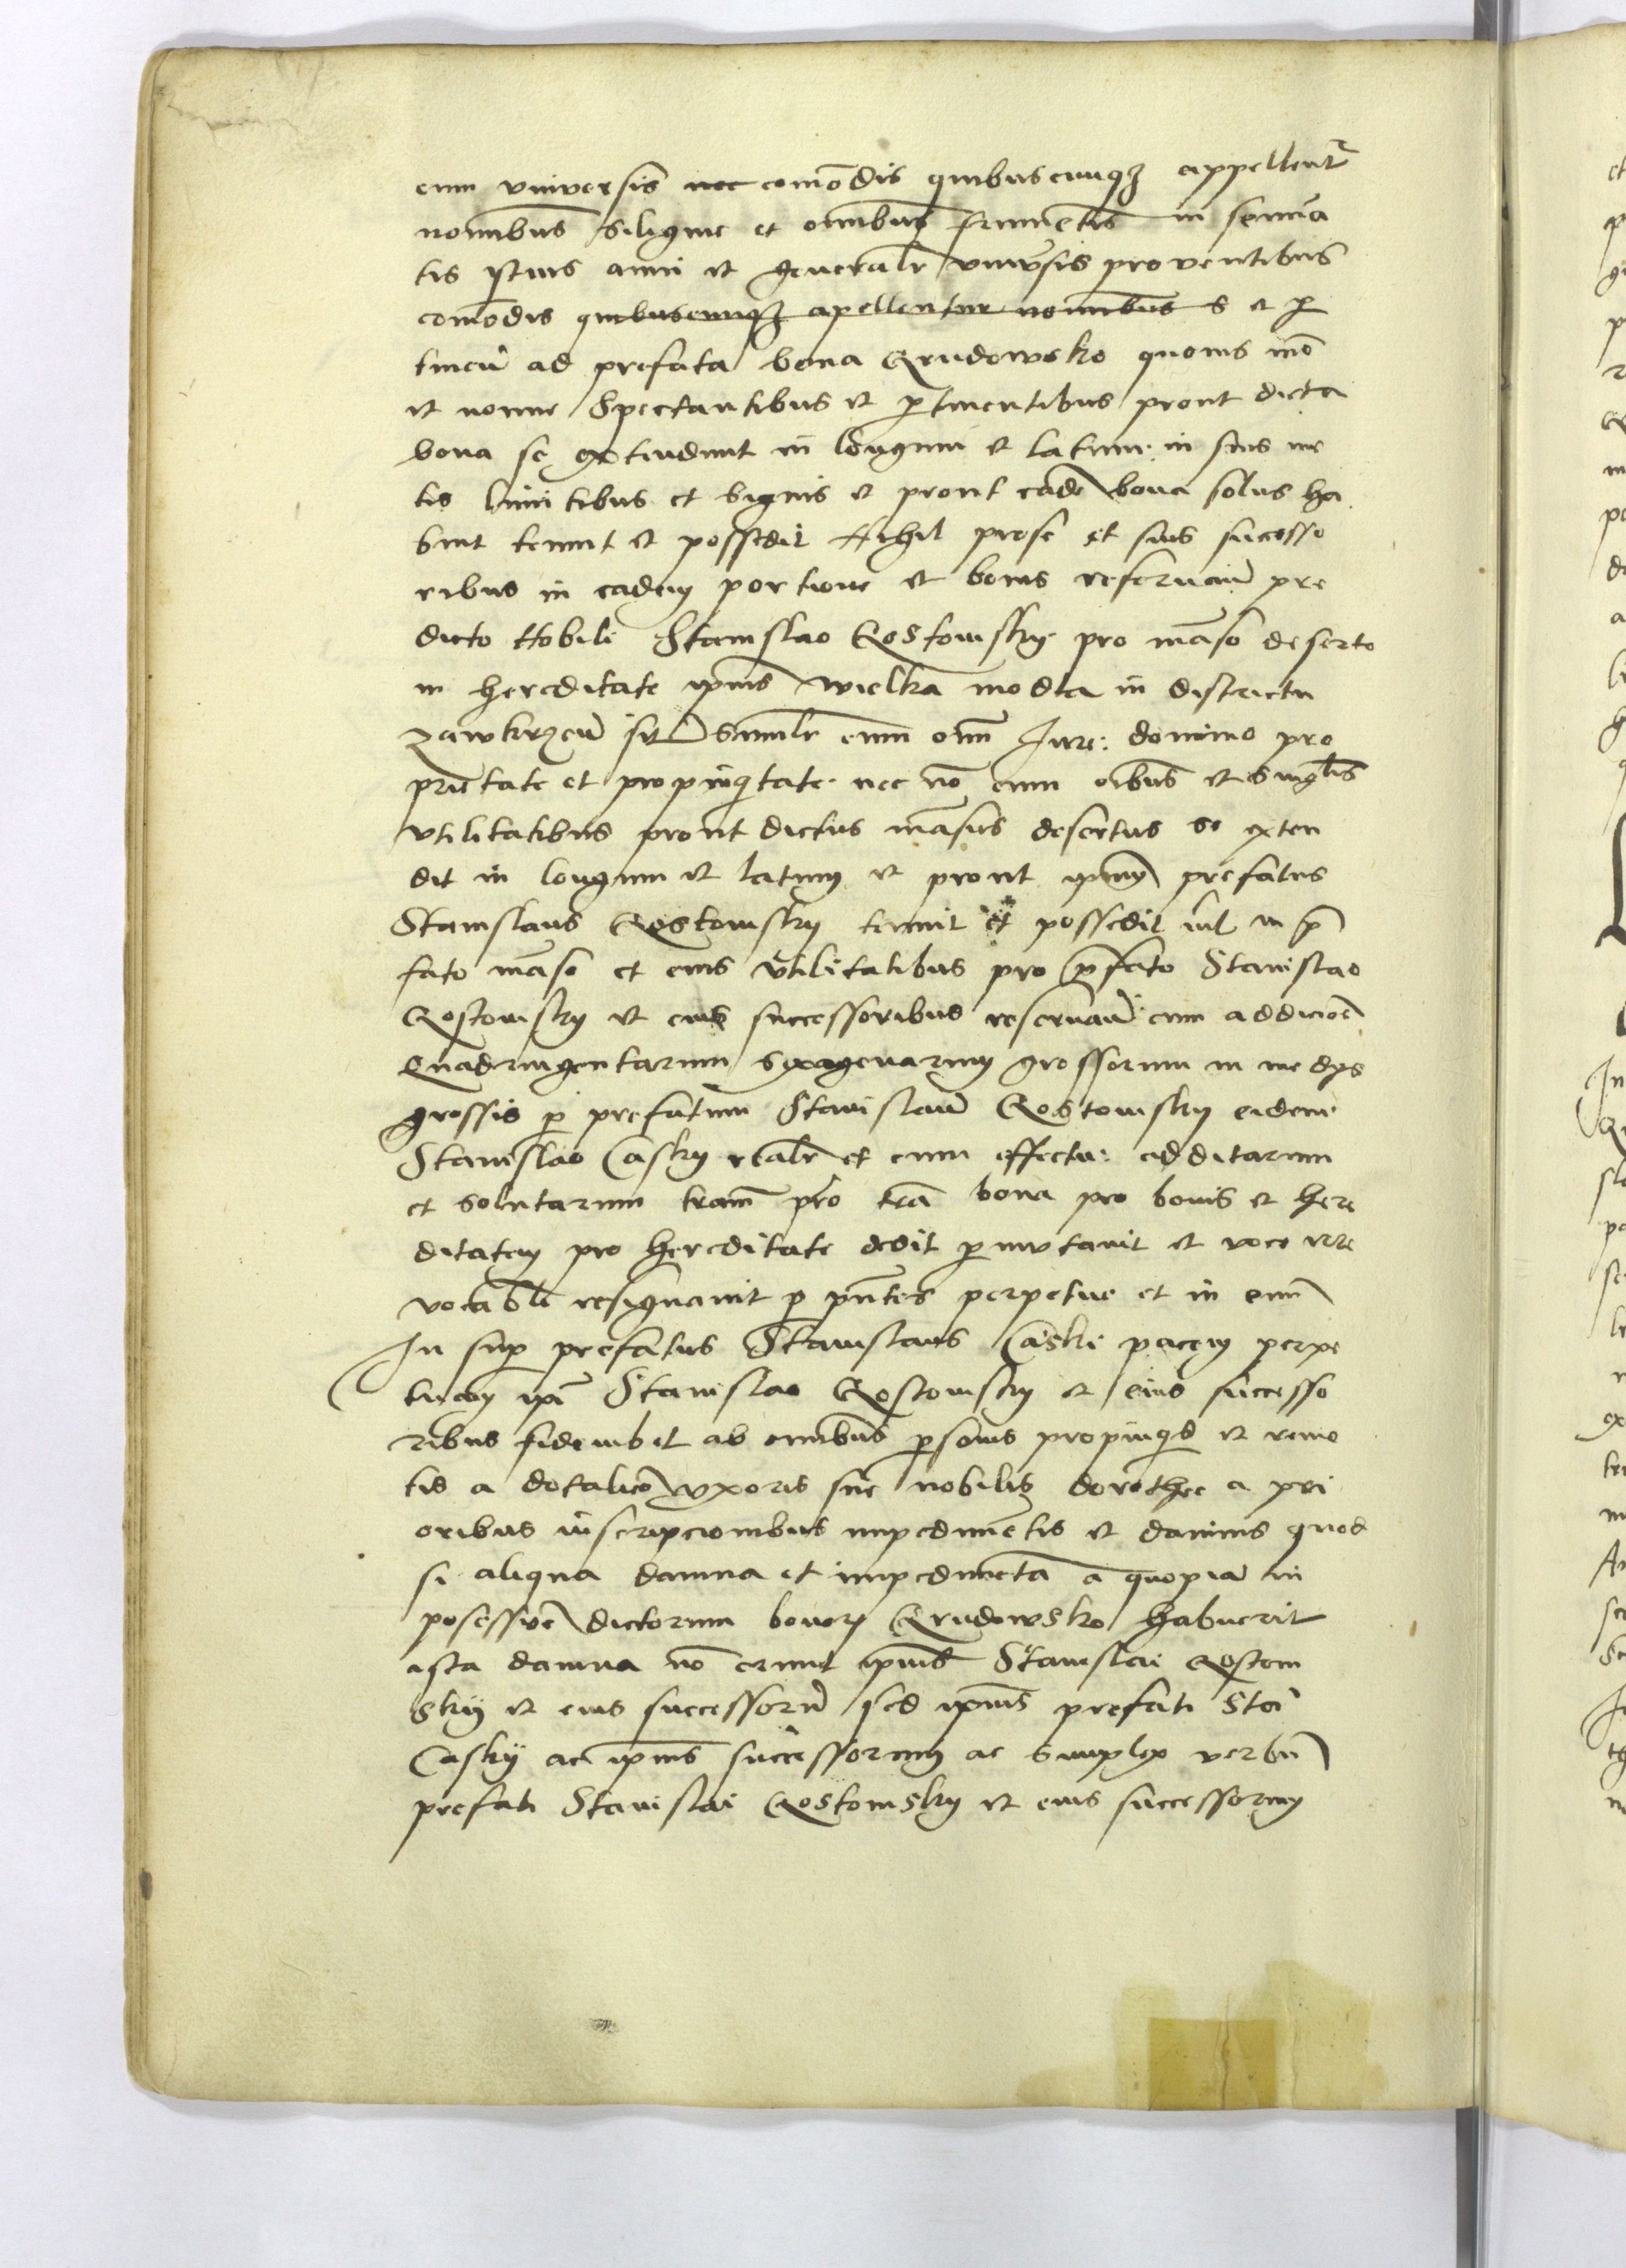 cum universis nec comodis quibuscunqz appellentr
nominibus Siligine et omnibus frumentis in semina
tis istius anni et generalr univsis proventibus
comodis quibuscunqz apellentur nominibus s et p
tinen ad prefata bona Grudowsko quovis mo
et nomine Spectantibus et ptinentibus prout dicta
bona se extendunt in longum et latum in suis me
tis limitibus et Signis et prout eade bona solus ha
buit tenuit et possedit Nihil prose et suis successo
ribus in eadem portione et bonis reservan pre
dicto Nobili Stanislao Gostomsky pro manso deserto
in hereditate ipius wielka modla in districtu
zawkrzen sit Similr cum omi Jure: dominio pro
prietate et propinqitate nec no cum oibus et singlis
utilitatibus prout dictus mansus desertus se exten
dit in longum et latum et prout ipsum prefatus
Stanislaus Gostomsky tenuit et possedit nil in p
fato manso et eius utilitatibus pro pfato Stanislao
Gostomsky et eius successoribus reservan cum addicioe
Quadringentarum sexagenarum grossorum in medys
grossis p prefatum Stanislaum Gostomsky eidem
Stanislao Casky realr et cum effectu: additarum
et solutarum tram pro tra bona pro bonis et here
ditatem pro hereditate dedit pmutavit et voce irre
vocabili resignavit p pntes perpetue et in evum
In sup prefatus Stanislaus Caski pacem perpe
tuam ipi Stanislao Gostomsky et eius successo
ribus fideiubet ab omnibus psonis propinqis et remo
tis a dotalicio uxoris sue nobilis dorothee a pri
oribus inscripcionibus impedimetis et damnis quod
si aliqua damna et impedimeta a quopia in
posessioe dictorum bonorz Grudowsko habuerit
ista damna no erunt ipius Stanislai Gostom
sky et eius successorum sed ipius prefati Sta
Casky ac ipius successorum ac simplex verbum
prefati Stanislai Gostomsky et eius successorum